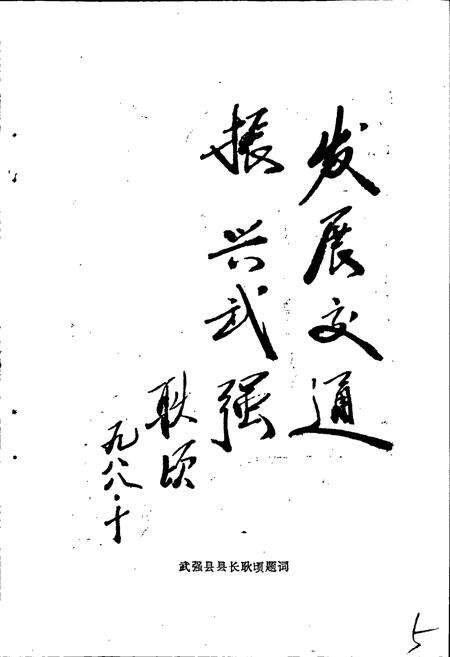 发展交通
振兴武强
耿顷
九八八·十
武强县县长耿顷题词
5